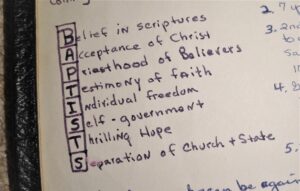 Belief in scriptures
Acceptance of Christ
Priesthood of Believers
Testimony of faith
Individual freedom
Self-government
Thrilling Hope
Separation of Church + State
2. 7
3. 2nd
4.
5.